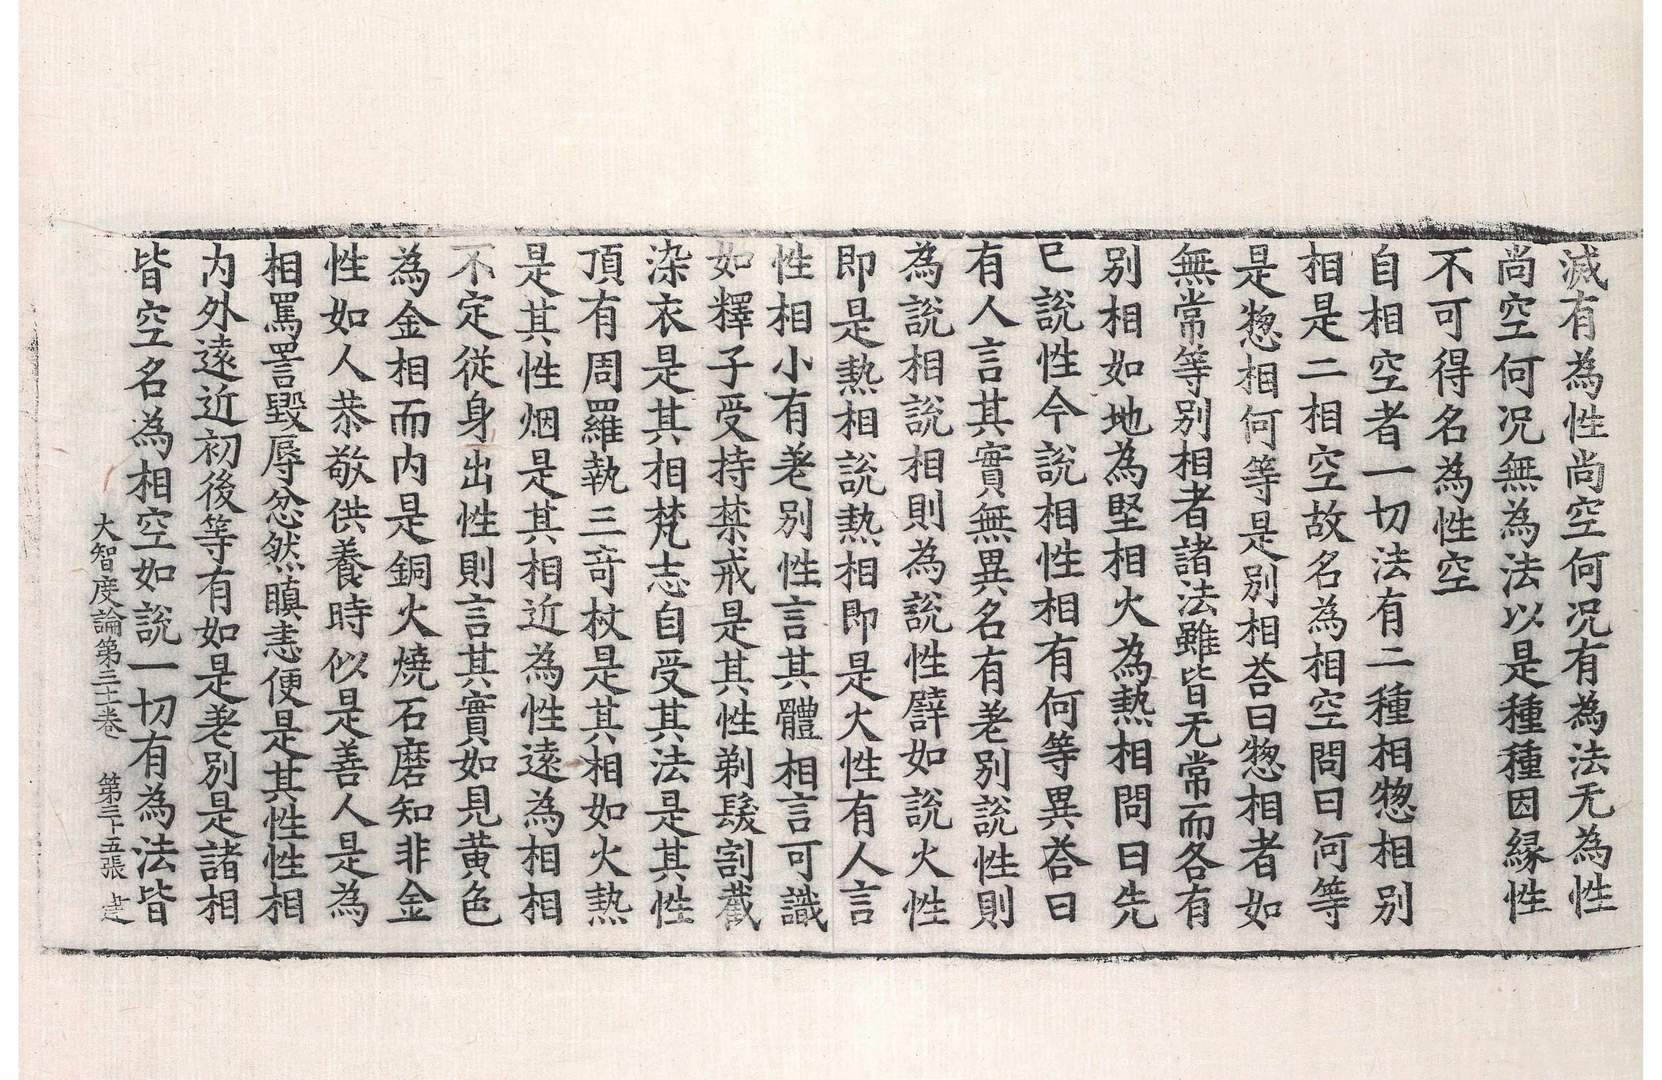 滅有為性尚空何况有為法无為性
尚空何况無為法以是種種因縁性
不可得名為性空
自相空者一切法有二種相惣相別
相是二相空故名為相空問曰何等
是惣相何等是別相荅曰惣相者如
無常等別相者諸法雖皆无常而各有
別相如地為堅相火為熱相問曰先
已說性今說相性相有何等異荅曰
有人言其實無異名有差別說性則
為說相說相則為說性譬如說火性
即是熱相說熱相即是火性有人言
性相小有差別性言其體相言可識
如釋子受持禁戒是其性剃髮割截
染衣是其相梵志自受其法是其性
頂有周羅執三奇杖是其相如火熱
是其性烟是其相近為性遠為相相
不定從身出性則言其實如見黄色
為金相而内是銅火燒石磨知非金
性如人恭敬供養時似是善人是為
相罵詈毀辱忿然瞋恚便是其性性相
内外遠近初後等有如是差別是諸相
皆空名為相空如說一切有為法皆
大智度論第三十一卷 第三十五張 建